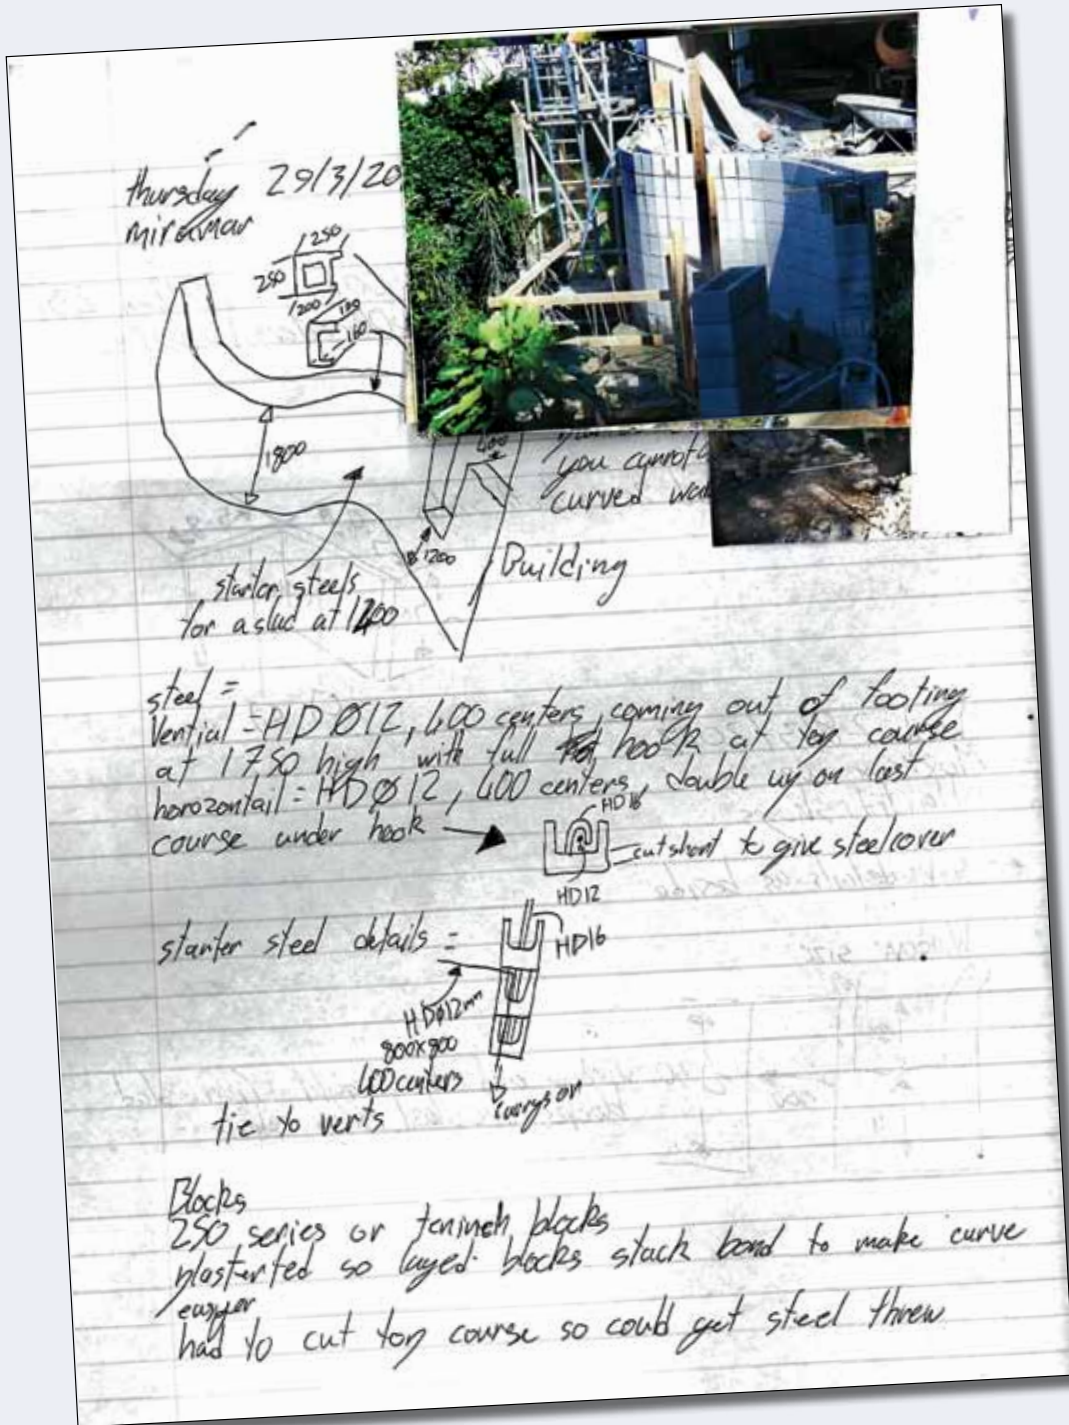 thursday 29/3/20
miramar
250
250
200
120
160
1800
400
you cannot
curved wa
1200
Building
starter steels
for a slad at 1200
steel =
Vertial = HD Ø12, 400 centers, coming out of footing
at 1750 high with full hook at top course
horozontail = HD Ø12, 400 centers, double up on last
course under hook
HD16
cut short to give steel cover
HD12
starter steel details =
HD16
HDØ12mm
800x800
400 centers
tie to verts
carrys on
Blocks
250 series or teninch blocks
plasterted so layed blocks stack bond to make curve
easyer
had to cut top course so could get steel threw